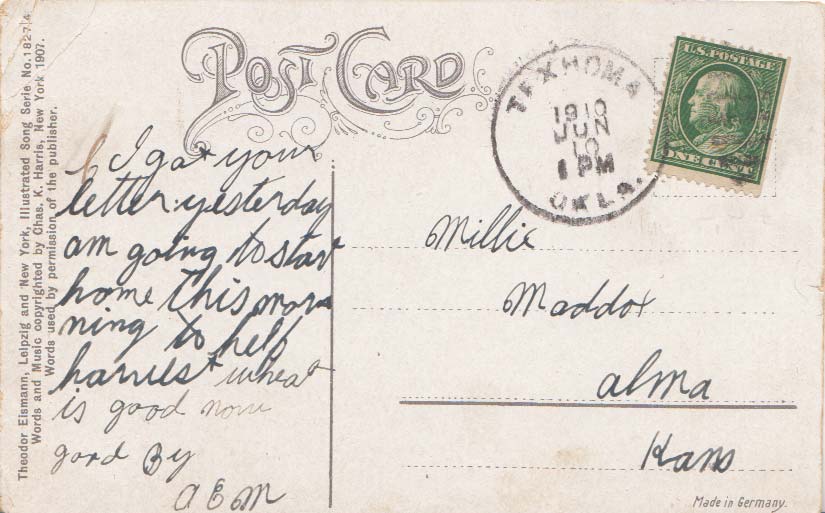 POST CARD
TEXHOMA
1910
JUN
10
1 PM
OKLA.
U.S. POSTAGE
ONE CENT
I got your
letter yesterday
am going to start
home this mor
ning to help
harvest wheat
is good now
good By
A E M
Millie
Maddox
Alma
Kans
Theodor Eismann, Leipzig and New York, Illustrated Song Serie No. 1827/4
Words and Music copyrighted by Chas. K. Harris, New York 1907.
Words used by permission of the publisher.
Made in Germany.